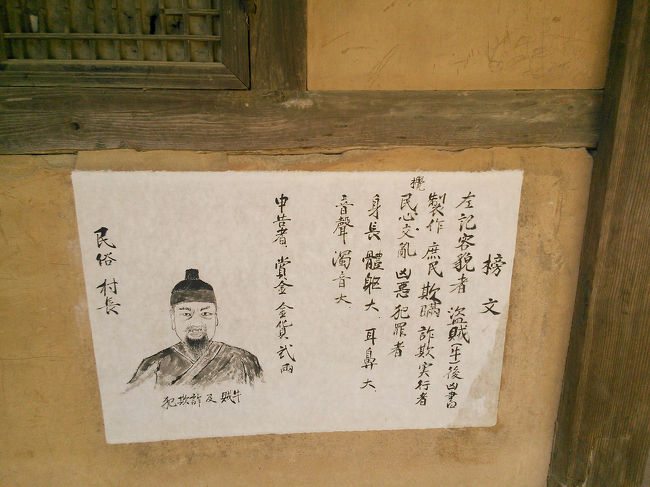 榜文
左記容貌者 盜賊(牛)後凶書
製作 庶民 欺瞞 詐欺実行者
攪
民心交亂 凶惡 犯罪者
身長 體軀大、耳鼻大、
音聲 濁音大
申告者 賞金 金貨 貳兩
牛賊及詐欺犯
民俗村長